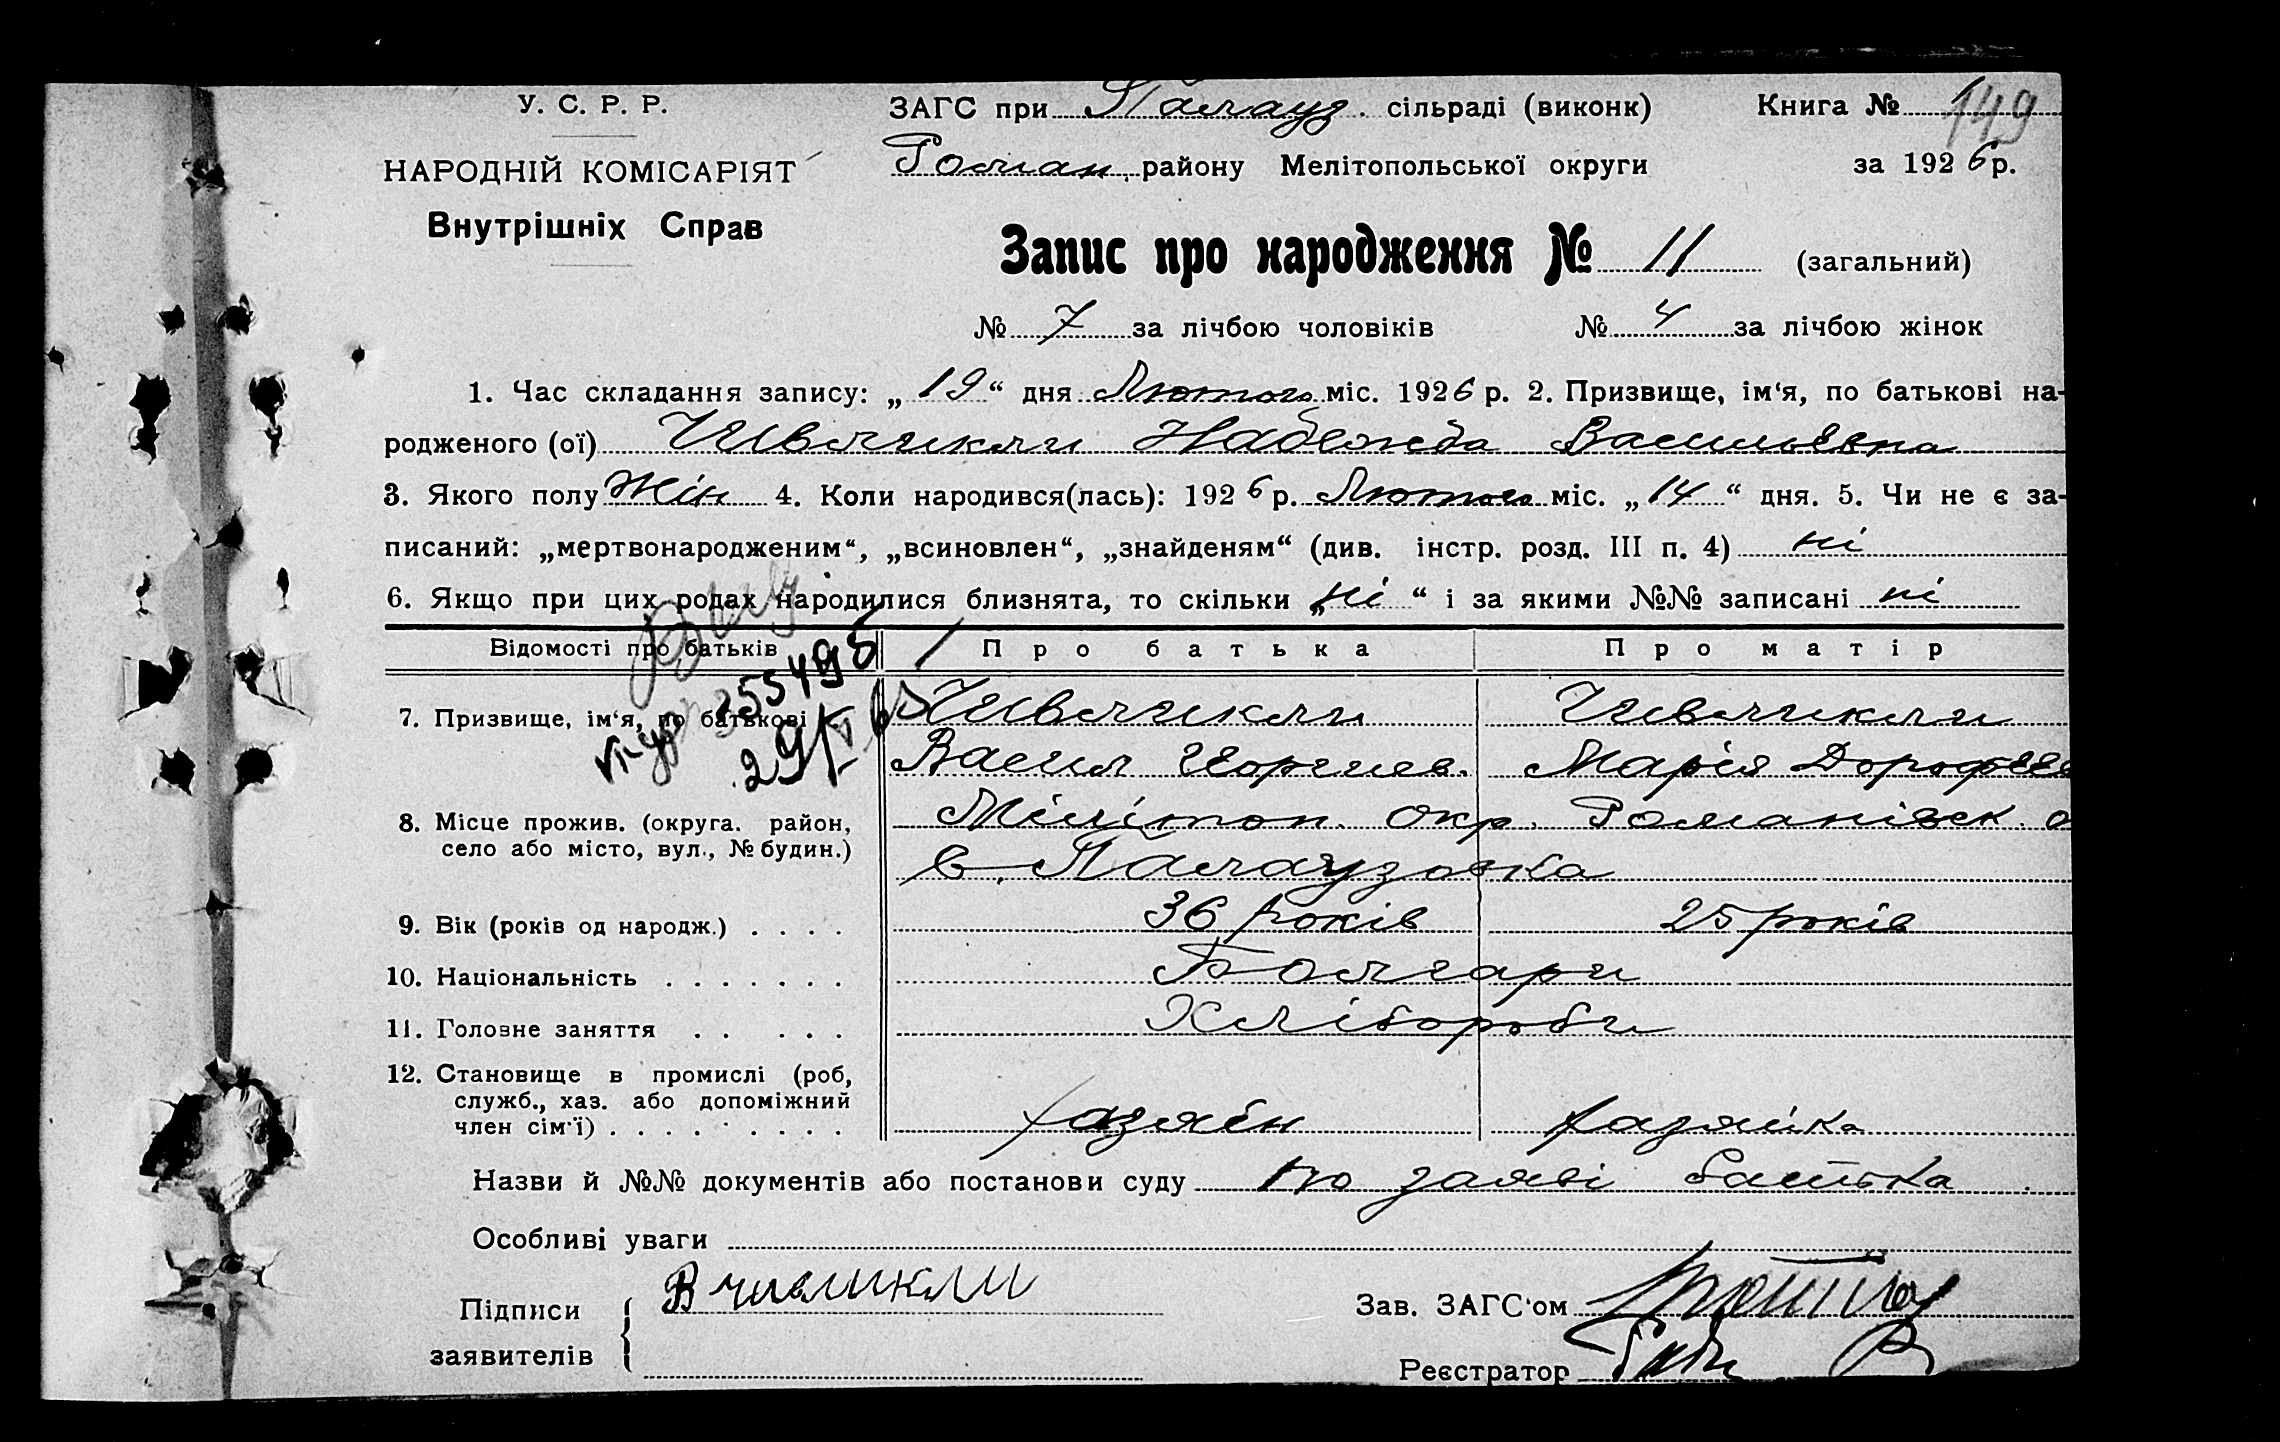 У. С. Р. Р.
НАРОДНІЙ КОМІСАРІЯТ
Внутрішніх Справ
ЗАГС при Палауз. сільраді (виконк)
Роман. району Мелітопольської округи
Книга № 149
за 1926 р.
Запис про народження № 11 (загальний)
№ 7 за лічбою чоловіків № 4 за лічбою жінок
1. Час складання запису: „19“ дня Лютого міс. 1926 р. 2. Призвище, ім‘я, по батькові на-
родженого (ої) Чивчикли Надежда Васильевна
3. Якого полу Жін 4. Коли народився(лась): 1926 р. Лютого міс. „14“ дня. 5. Чи не є за-
писаний: „мертвонародженим“, „всиновлен“, „знайденям“ (див. інстр. розд. III п. 4) ні
6. Якщо при цих родах народилися близнята, то скільки „ні“ і за якими №№ записані ні
Відомості про батьків Про батька Про матір
7. Призвище, ім‘я, по батькові Чивчикли Чивчикли
Васил Георгиев. Марія Дорофеев
8. Місце прожив. (округа. район, Мілітоп. окр. Романівск.
село або місто, вул., № будин.) в. Палаузовка
9. Вік (років од народж.) . . . . 36 років 25 років
10. Національність . . . . . . . Болгари
11. Головне заняття . . . . . Хлібороби
12. Становище в промислі (роб,
служб., хаз. або допоміжний
член сім‘ї) . . . . . . . . . хазяїн хазяйка
Назви й №№ документів або постанови суду по заяві батька
Особливі уваги
Підписи
заявителів
В чивчикли
Зав. ЗАГС‘ом
Реєстратор